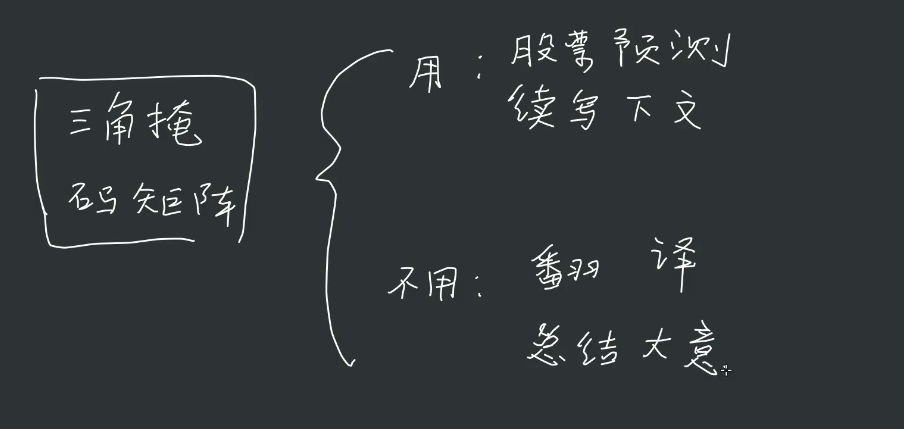 三角掩
码矩阵
用：股票预测
续写下文
不用：翻译
总结大意